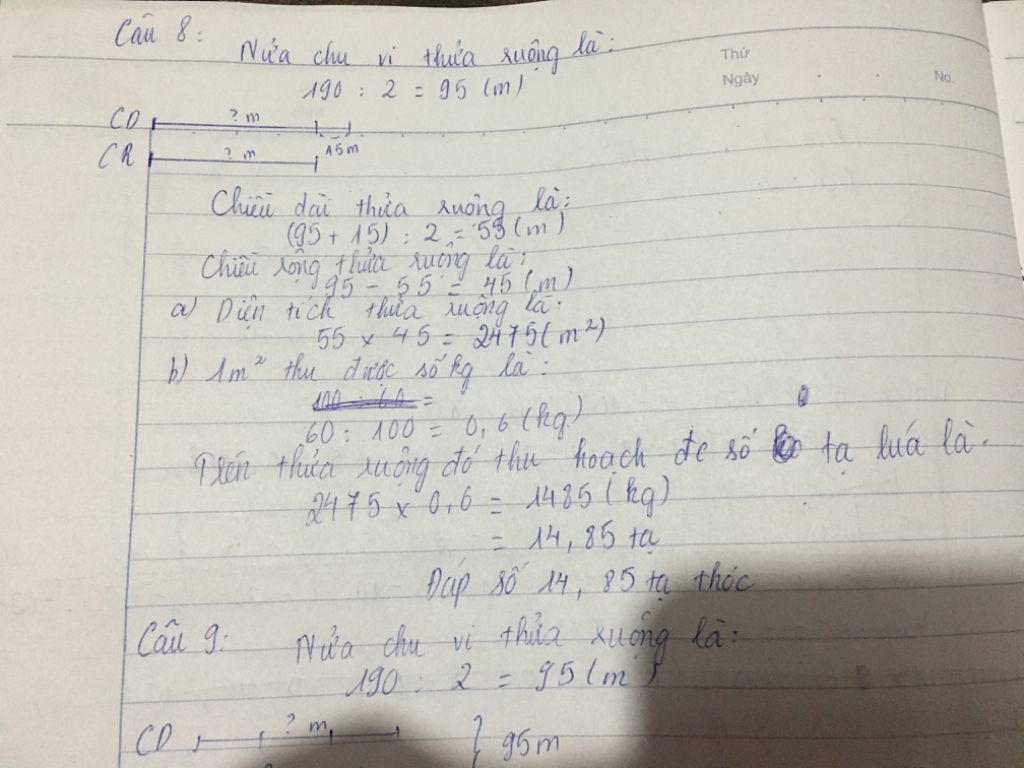 Câu 8:
Nửa chu vi thửa ruộng là:
Thứ
190 : 2 = 95 (m)
Ngày No.
CD ? m
15m
CR ? m
Chiều dài thửa ruông là:
(95 + 15) : 2 = 55 (m)
Chiều rộng thửa ruộng là:
95 - 55 = 45 (m)
a) Diện tích thửa ruộng là:
55 x 45 = 2475 (m²)
b) 1m² thu được số kg là:
100 : 60 =
60 : 100 = 0,6 (kg)
Trên thửa ruộng đó thu hoạch đc số tạ lúa là.
2475 x 0,6 = 1485 (kg)
= 14,85 tạ
Đáp số 14,85 tạ thóc
Câu 9: Nửa chu vi thửa ruộng là:
190 : 2 = 95 (m)
CD ? m } 95m